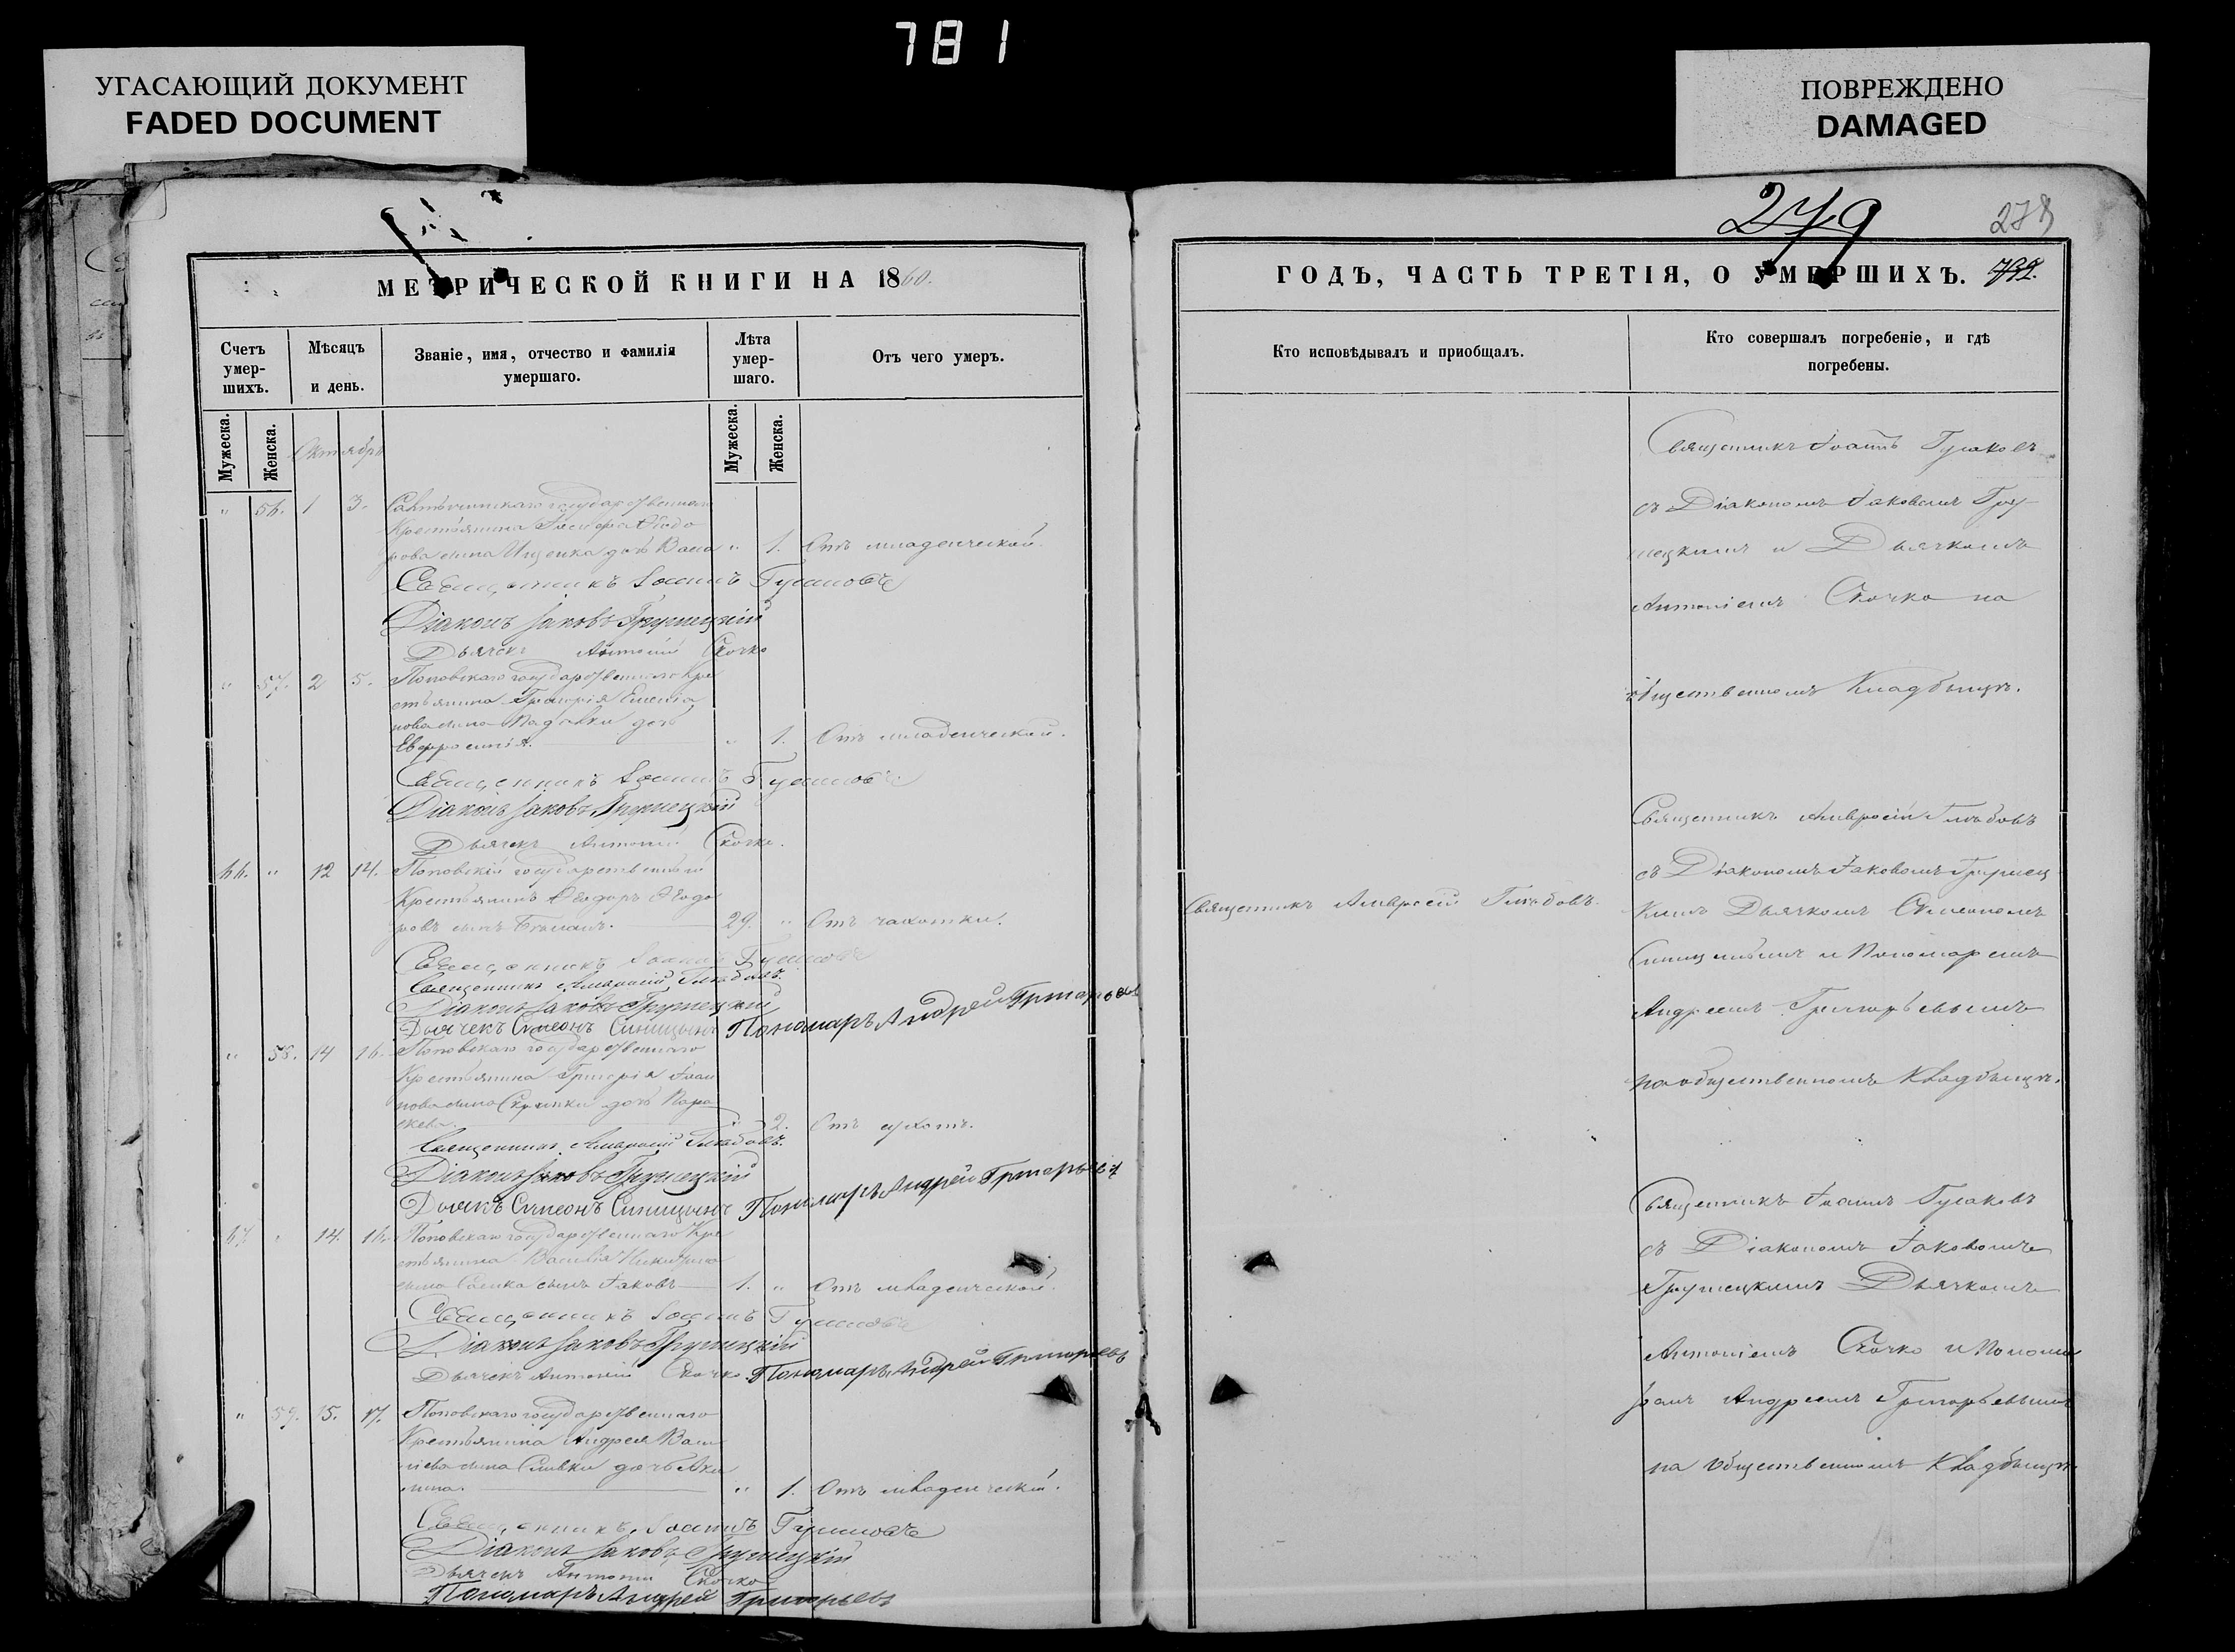 781
УГАСАЮЩИЙ ДОКУМЕНТ
FADED DOCUMENT
ПОВРЕЖДЕНО
DAMAGED
279
278
МЕТРИЧЕСКОЙ КНИГИ НА 1860.
Счетъ умер-шихъ.
Мѣсяцъ и день.
Званіе, имя, отчество и фамилія
умершаго.
Лѣта умер-шаго.
Отъ чего умеръ.
Мужеска.
Женска.
Октябрь
Мужеска.
Женска.
" 56. 1 3. государственнаго
Крестьянина
сына Ищенка дочь Васса " 1. Отъ младенческой.
Священникъ Іоаннъ
Діаконъ Іаковъ Грушецкій
Дьячекъ Антоній Скочко
" 57. 2 5. Поповскаго государственнаго Кре
стьянина Григорія
сына дочь
Евфросинія. " 1. Отъ младенческой.
Священникъ Іоаннъ
Діаконъ Іаковъ Грушецкій
Дьячекъ Антоній Скочко.
66. " 12 14. Поповскій государственный
Крестьянинъ Ѳеодоръ Ѳеодо
ровъ сынъ 29. " Отъ чахотки.
Священникъ Іоаннъ
Священникъ Амвросій Глѣбовъ.
Діаконъ Іаковъ Грушецкій
Дьячекъ Симеонъ Синицынъ Пономарь Андрей Григорьевъ
" 58. 14 16. Поповскаго государственнаго
Крестьянина Григорія Іоан
нова сына Скрипки дочь Пара
скева. " 2. Отъ
Священникъ Амвросій Глѣбовъ.
Діаконъ Іаковъ Грушецкій
Дьячекъ Симеонъ Синицынъ Пономарь Андрей Григорьевъ
67. " 14. 16. Поповскаго государственнаго Кре
стьянина Василія Никитина
сына сынъ Іаковъ 1. " Отъ младенческой.
Священникъ Іоаннъ
Діаконъ Іаковъ Грушецкій
Дьячекъ Антоній Скочко Пономарь Андрей Григорьевъ
" 59. 15. 17. Поповскаго государственнаго
Крестьянина Андрея Васи
ліева сына Сливки дочь Аки
лина. " 1. Отъ младенческой.
Священникъ Іоаннъ
Діаконъ Іаковъ Грушецкій
Дьячекъ Антоній Скочко
Пономарь Андрей Григорьевъ
ГОДЪ, ЧАСТЬ ТРЕТІЯ, О УМЕРШИХЪ.
Кто исповѣдывалъ и приобщалъ.
Кто совершалъ погребеніе, и гдѣ
погребены.
Священникъ Іоаннъ
съ Діакономъ Іаковомъ Гру
шецкимъ и Дьячкомъ
Антоніемъ Скочко на
общественномъ Кладбищѣ.
Священникъ Амвросій Глѣбовъ
съ Діакономъ Іаковомъ Грушец
Священникъ Амвросій Глѣбовъ.
кимъ Дьячкомъ Симеономъ
Синицынымъ и Пономаремъ
Андреемъ Григорьевымъ
на общественномъ Кладбищѣ.
Священникъ Іоаннъ
съ Діакономъ Іаковомъ
Грушецкимъ Дьячкомъ
Антоніемъ Скочко и Понома
ремъ Андреемъ Григорьевымъ
на общественномъ Кладбищѣ.